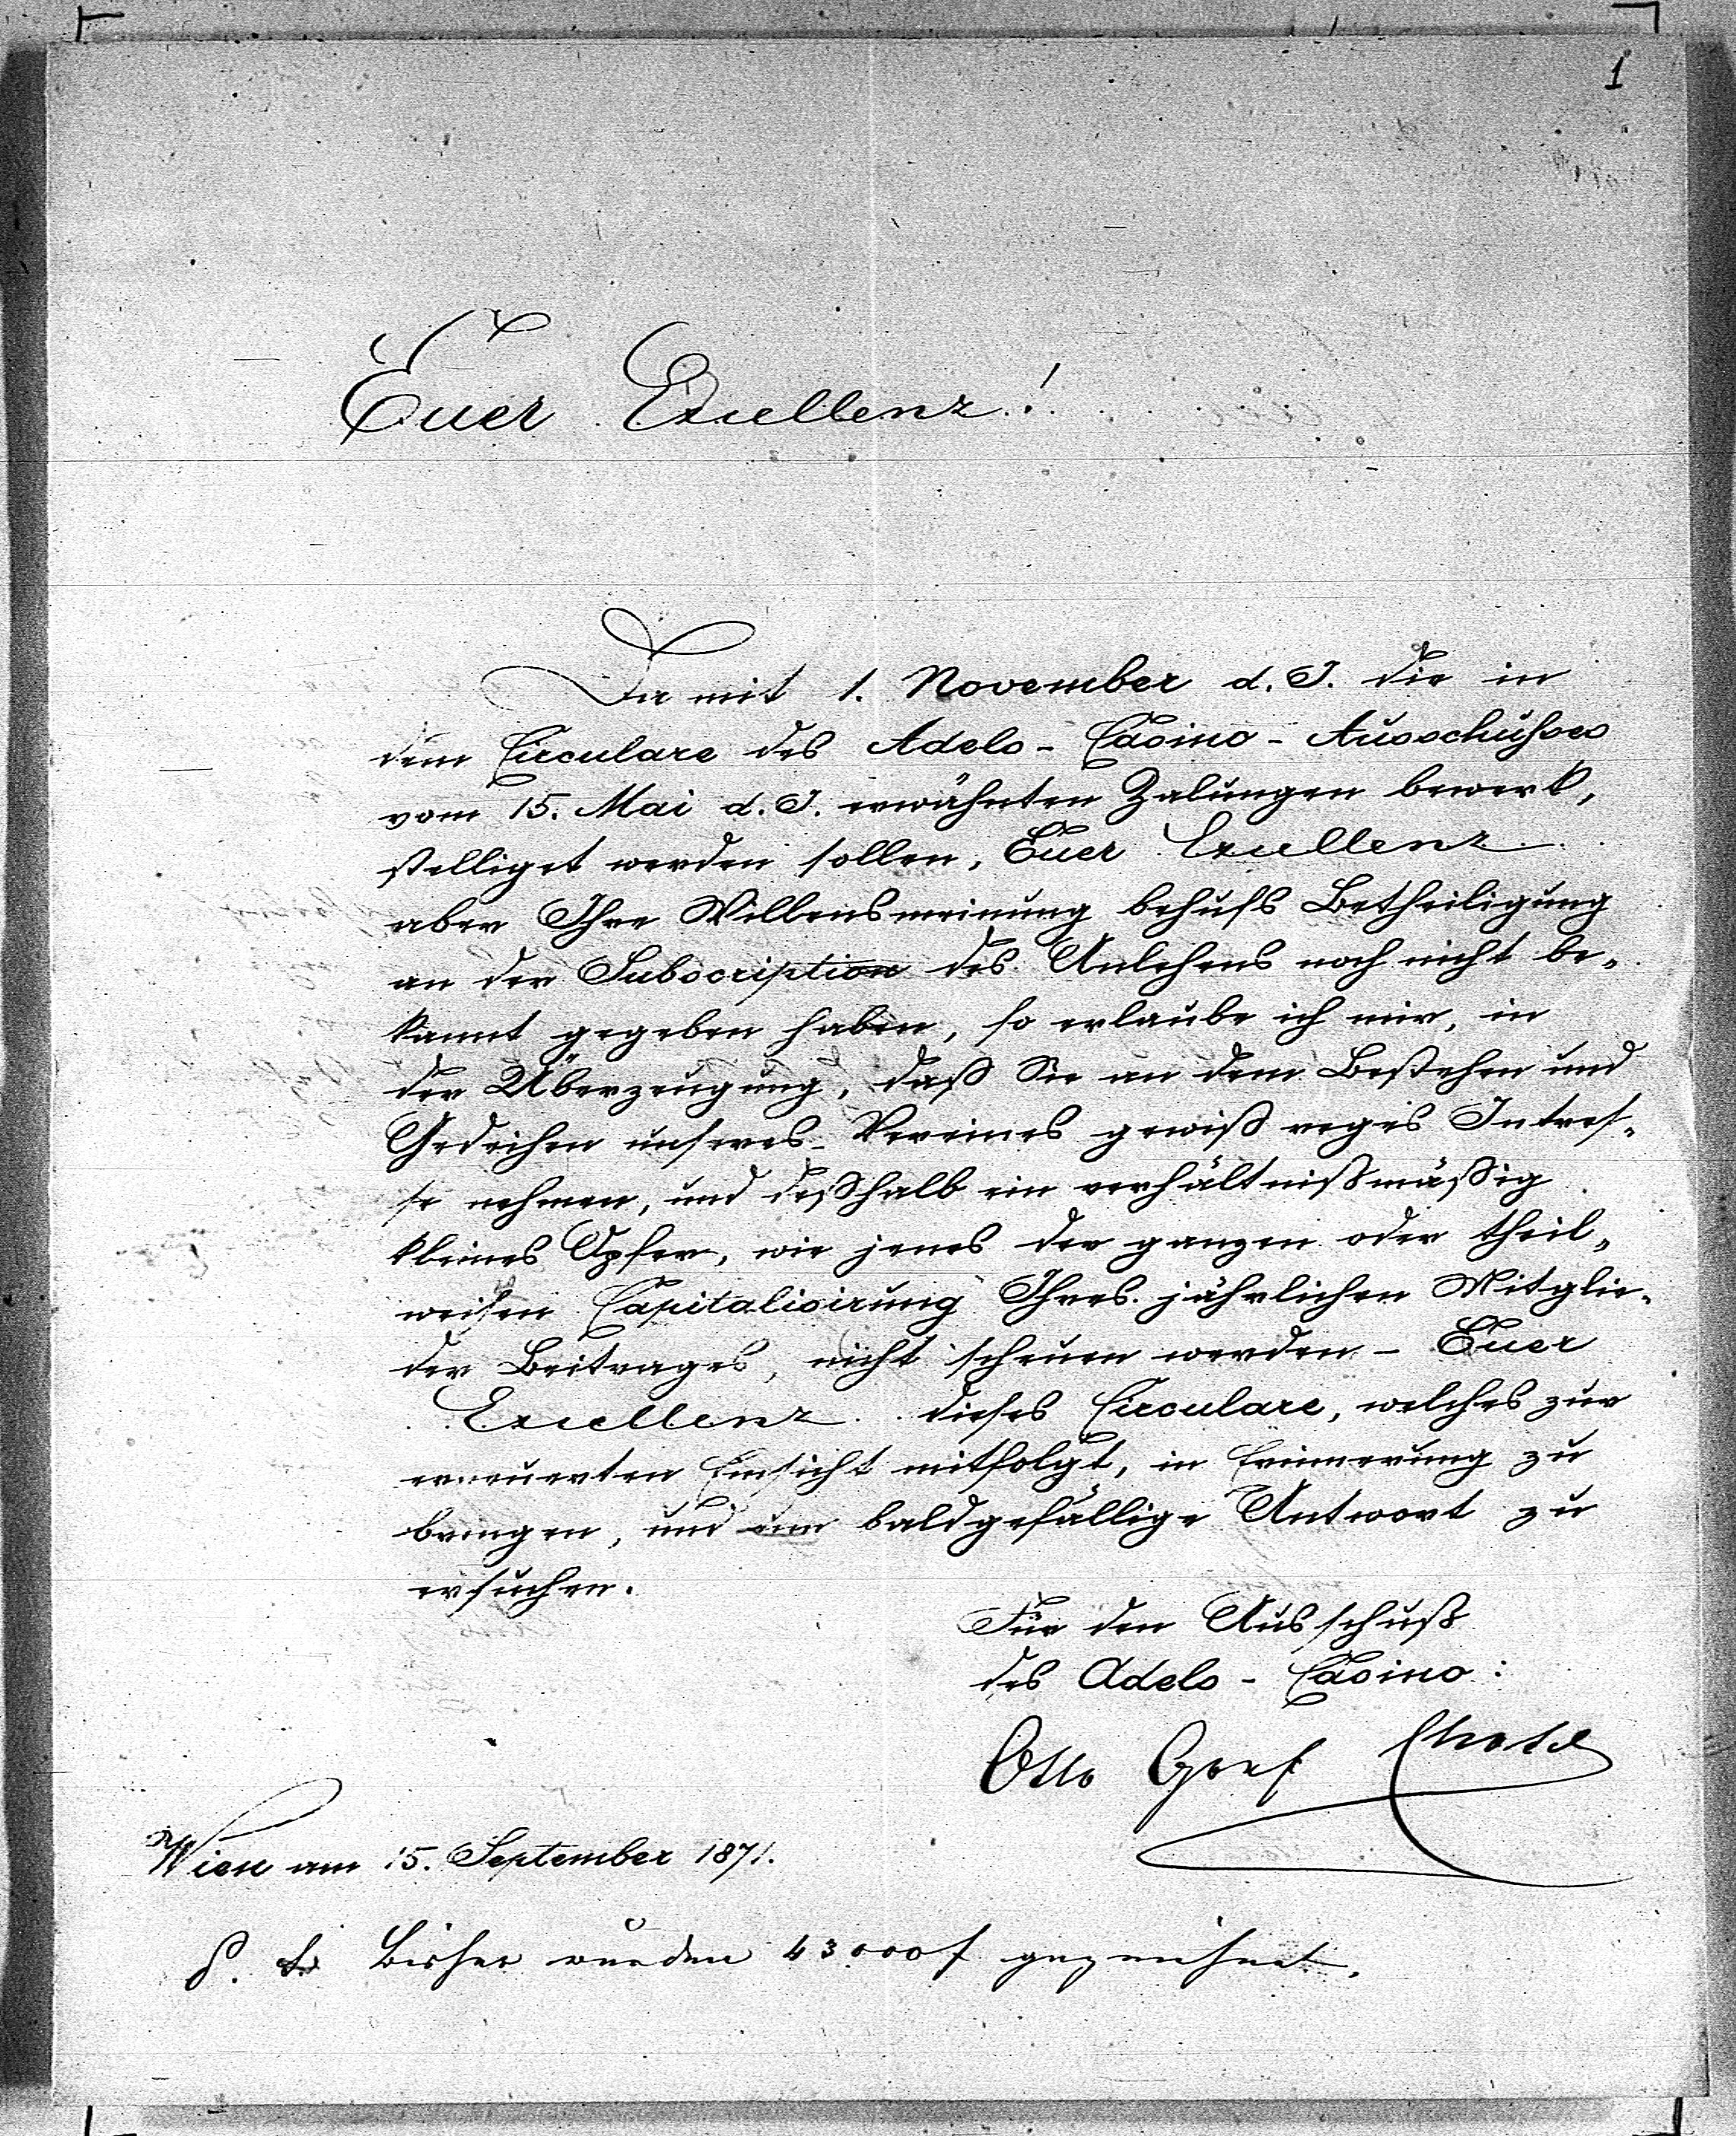 1
Euer Excellenz!
Da mit 1. November d. J. die in
dem Circulare des Adels-Casino-Ausschußes
vom 15. Mai d. J. erwähnten Zalungen bewerk„
stelliget werden sollen, Euer Excellenz
aber Ihre Willensmeinung behufs Betheiligung
an der Subscription des Anlehens noch nicht be„
kannt gegeben haben, so erlaube ich mir, in
der Überzeugung, daß Sie an dem Bestehen und
Gedeihen unseres Vereines gewiß reges Intres„
se nehmen, und deßhalb ein verhältnißmäßig
kleines Opfer, wie jenes der ganzen oder theil„
weisen Capitalisirung Ihres jährlichen Mitglie„
der Beitrages, nicht scheuen werden - Euer
Excellenz dieses Circulare, welches zur
erneuerten Einsicht mitfolgt, in Erinnerung zu
bringen, und um baldgefällige Antwort zu
ersuchen.
Für den Ausschuß
des Adels-Casino:
Otto Graf Chotek
Wien am 15. September 1871.
P. S. Bisher wurden 43.000 f gezeichnet.